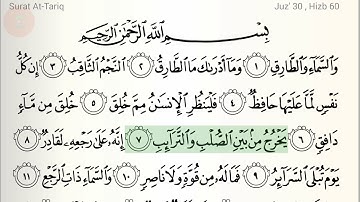 Surat At-Tariq
Juz' 30 , Hizb 60
بِسْمِ ٱللَّهِ ٱلرَّحْمَٰنِ ٱلرَّحِيمِ
وَٱلسَّمَآءِ وَٱلطَّارِقِ ١ وَمَآ أَدْرَىٰكَ مَا ٱلطَّارِقُ ٢ ٱلنَّجْمُ ٱلثَّاقِبُ ٣ إِن كُلُّ
نَفْسٍ لَّمَّا عَلَيْهَا حَافِظٌ ٤ فَلْيَنظُرِ ٱلْإِنسَٰنُ مِمَّ خُلِقَ ٥ خُلِقَ مِن مَّآءٍ
دَافِقٍ ٦ يَخْرُجُ مِنۢ بَيْنِ ٱلصُّلْبِ وَٱلتَّرَآئِبِ ٧ إِنَّهُۥ عَلَىٰ رَجْعِهِۦ لَقَادِرٌ ٨
يَوْمَ تُبْلَى ٱلسَّرَآئِرُ ٩ فَمَا لَهُۥ مِن قُوَّةٍ وَلَا نَاصِرٍ ١٠ وَٱلسَّمَآءِ ذَاتِ ٱلرَّجْعِ ١١